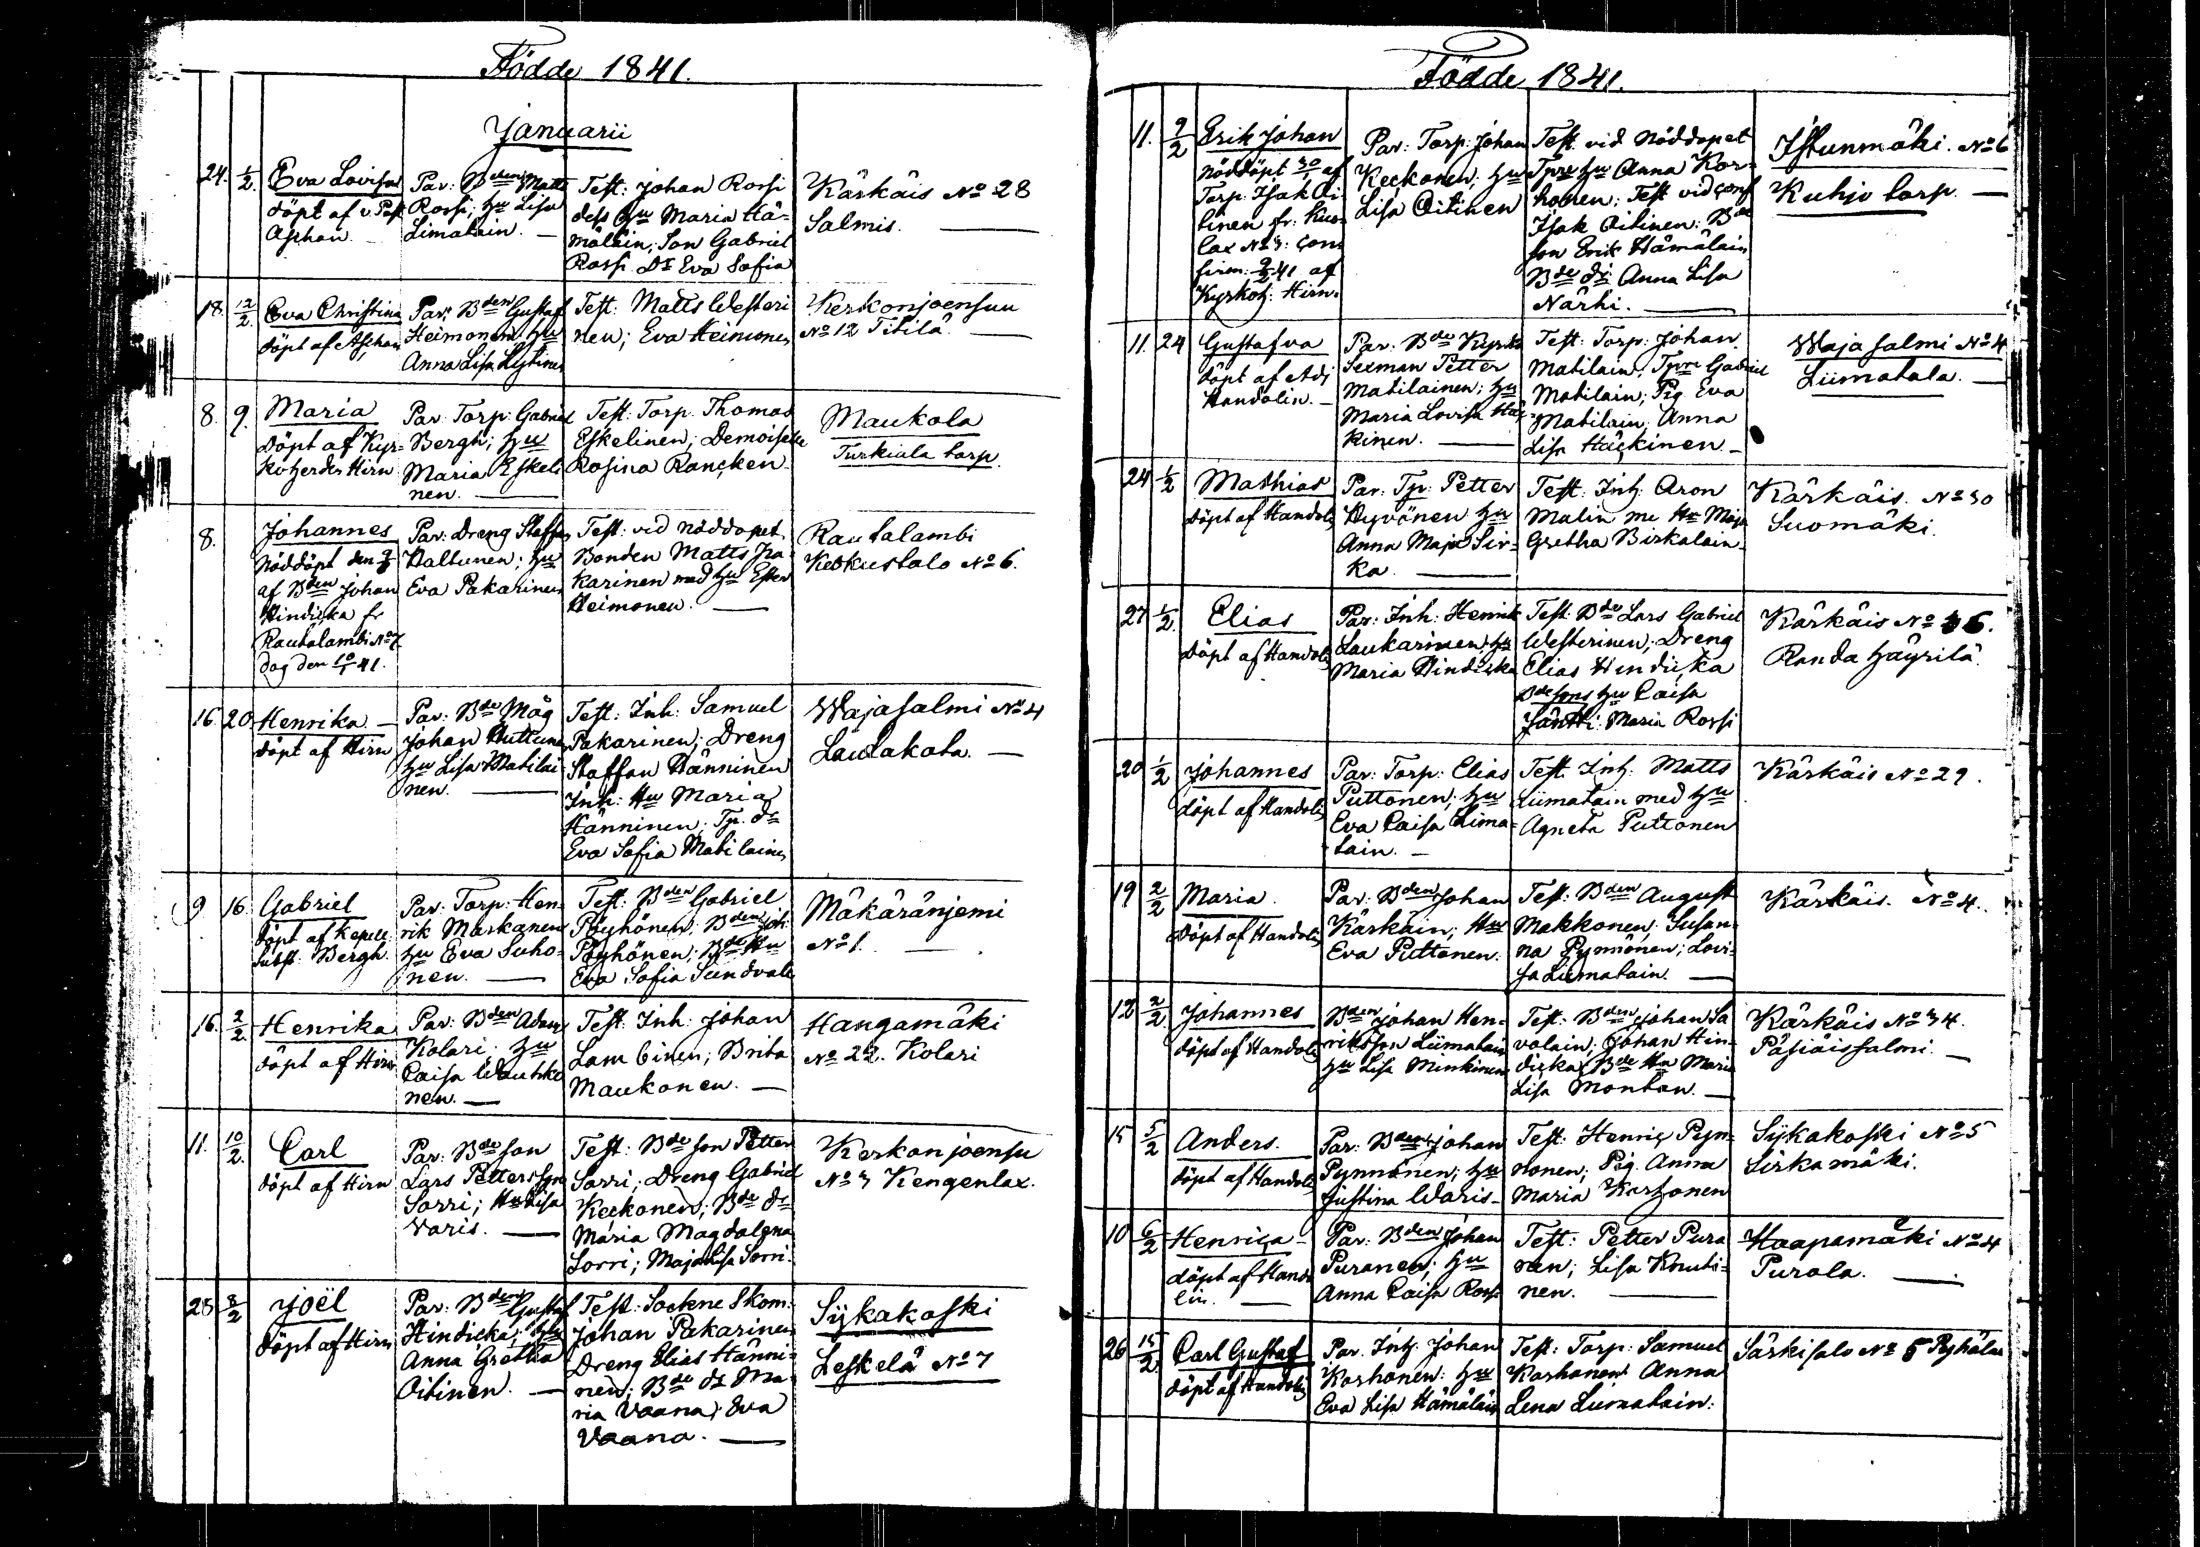 Födde 1841.
Januarii
24. 1/2. Eva Lovisa
döpt af v. Past.
Aschan.
Par: Bdens Matts
Rossi; Hu Lisa
Limatain. —
Test: Johan Rossi
dess Hu Maria Hä-
mäläin, Son Gabriel
Rossi Dr Eva Sofia
Kärkäis No 28
Salmis. —
18. 12/2. Eva Christina
döpt af Aschan
Par: Bden Gustaf
Heimonen, Hu
Anna Lisa Lytinen
Test: Matts Westeri
nen; Eva Heimonen
Kerkonjoensuu
No 12 Titilä. —
8. 9. Maria
Döpt af Kyr-
koherden Hirn
Par Torp: Gabriel
Bergh; Hu
Maria Eskeli
nen. —
Test: Torp. Thomas
Eskelinen; Demoiselle
Rosina Rancken
Maukola
Turkiula torp.
8. Johannes
Nöddöpt den
af Bden Johan
Hindicka fr
Rautalambi No 7
dag den 10/1 41.
Par: Dreng Staffan
Haltunen; Hu
Eva Pakarinen
Test: vid nöddopet
Bonden Matts Pa
karinen med Hu Ester
Heimonen. —
Rautalambi
Keskustalo No 6.
16. 20. Henrika —
döpt af Hirn
Par: Bde Måg
Johan Huttunen
Hu Lisa Matilai
nen. —
Test: Inh: Samuel
Pakarinen; Dreng
Staffan Hänninen
Inh: Hu Maria
Hänninen; Tp. dr
Eva Sofia Matilainen
Wajasalmi No 4
Laulakota. —
9 16. Gabriel
döpt af Kapell
Subst. Bergh.
Par: Torp: Hen-
rik Markanen
Hu Eva Suho-
nen. —
Test: Bden Gabriel
Pöyhönen; Bden Joh:
Pöyhönen; Bde Hu
Eva Sofia Sundvall
Mäkäränjemi
No 1. —
16. 2/2. Henrika
döpt af Hirn
Par: Bden Adam
Kolari. Hu
Caisa Wauhko
nen. —
Test: Inh: Johan
Lambinen; Brita
Maukonen. —
Hangamäki
No 22. Kolari
11. 10/2. Carl
döpt af Hirn
Par: Bde son
Lars Pettersson
Sorri; Hu Lisa
Varis. —
Test: Bde son Petter
Sorri; Dreng Gabriel
Keckonen; Bde dr
Maria Magdalena
Sorri; Maja Lisa Sorri.
Kerkonjoensu
No 3 Kengenlax.
28 8/2 Joël
döpt af Hirn
Par: Bden Gustaf
Hindicka; Hu
Anna Gretha
Oitinen. —
Test: Sockne Skom:
Johan Pakarinen
Dreng Elias Hänni-
nen; Bde dr Ma-
ria Vaana; Eva
Vaana. —
Sÿkakoski
Leskelä No 7
Födde 1841.
11. 9/2 Erik Johan
Nöddöpt 30/1 af
Torp: Isak Oi
tinen fr. Kus
lax No 3: con
firm: 9/2 41 af
Kyrkoh: Hirn.
Par: Torp: Johan
Keckonen; Hu
Lisa Oitinen
Test. vid Nöddopet
Tpre Hu Anna Kor-
honen; Test vid conf
Isak Oitinen; Bde
son Erik Hämäläin
Bde dr Anna Lisa
Närhi. —
Istunmäki. No 6
Kuhjo torp. —
11. 24 Gustafva
döpt af Adj
Handolin. —
Par: Bde Kyrko
Sexman Petter
Matilainen; Hu
Maria Lovisa Häc-
kinen. —
Test: Torp: Johan
Matilain; Tpre Gabriel
Matilain; Pig. Eva
Matilain; Anna
Lisa Häckinen. —
Waja salmi No 4
Liimatala. —
24 1/2 Mathias
döpt af Handolin
Par: Tp: Petter
Hyvönen Hu
Anna Maja Sir-
ka. —
Test: Inh: Aron
Malin me Hu Maja
Gretha Birkalain
Kärkäis. No 30
Suomäki.
27 1/2. Elias
döpt af Handolin
Par: Inh: Henrik
Laukarinen; Hu
Maria Hindicka
Test: Bde Lars Gabriel
Westerinen; Dreng
Elias Hindicka
Bde sons Hu Caisa
Jäntti: Maria Rossi
Kärkäis No 36.
Randa Häyrilä.
20 1/2 Johannes
döpt af Handolin
Par: Torp: Elias
Puttonen; Hu
Eva Caisa Lima-
tain. —
Test. Inh: Matts
Liimatain med Hu
Agneta Puttonen
Kärkäis No 29.
19 2/2 Maria.
döpt af Handolin
Par: Bden Johan
Kärkäin; Hu
Eva Puttonen.
Test: Bden August
Makkonen; Susan-
na Pynnönen; Lovi-
sa Liimatain. —
Kärkäis. No 4.
12 2/2 Johannes
döpt af Handolin
Bden Johan Hen-
riksson Liimatain
Hu Lisa Minkinen
Test: Bden Johan Sa
volain; Johan Hin-
dicka; Bde Hu Maria
Lisa Montan. —
Kärkäis No 34.
Päsiäissalmi. —
15 5/2 Anders.
döpt af Handolin
Par: Bden Johan
Pynnönen; Hu
Justina Waris.
Test: Henric Pyn-
nönen; Pig. Anna
Maria Korhonen
Sÿkakoski No 5
Sirkamäki.
10 6/2 Henrica —
döpt af Hando
lin. —
Par: Bden Johan
Puranen; Hu
Anna Caisa Rossi
Test: Petter Pura
nen; Lisa Knuti-
nen. —
Haapamäki No 4
Purola. —
26 15/2 Carl Gustaf
döpt af Handolin
Par. Inh: Johan
Korhonen: Hu
Eva Lisa Hämäläin
Test: Torp: Samuel
Korhonen Anna
Lena Liimatain.
Särkisalo No 5 Pyhälax